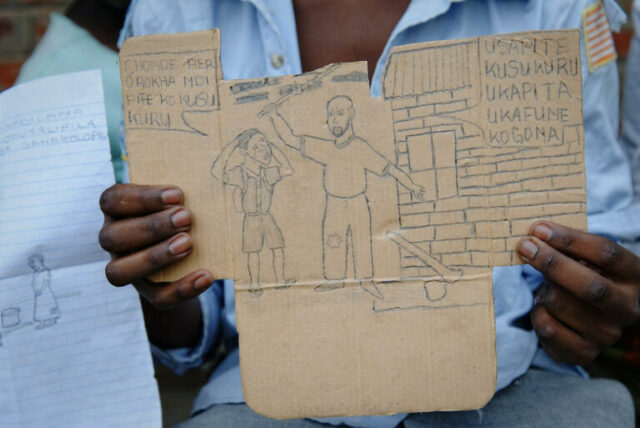 CHONDE BAB
O, NOKHA NDI
PITE KO KUSU
KURU
USAPITE
KUSUKURU
UKAPITA
UKAFUNE
KOGONA
SANAKOLOPE